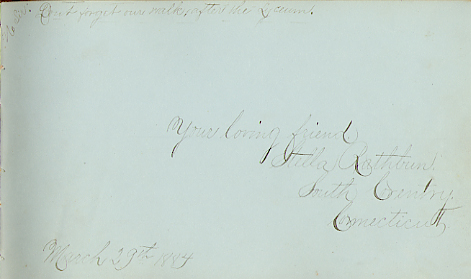 Don't forget our walk after the Lyceum.
Your loving friend
Stella Rathbun.
South Coventry.
Connecticut
March 29th 1884